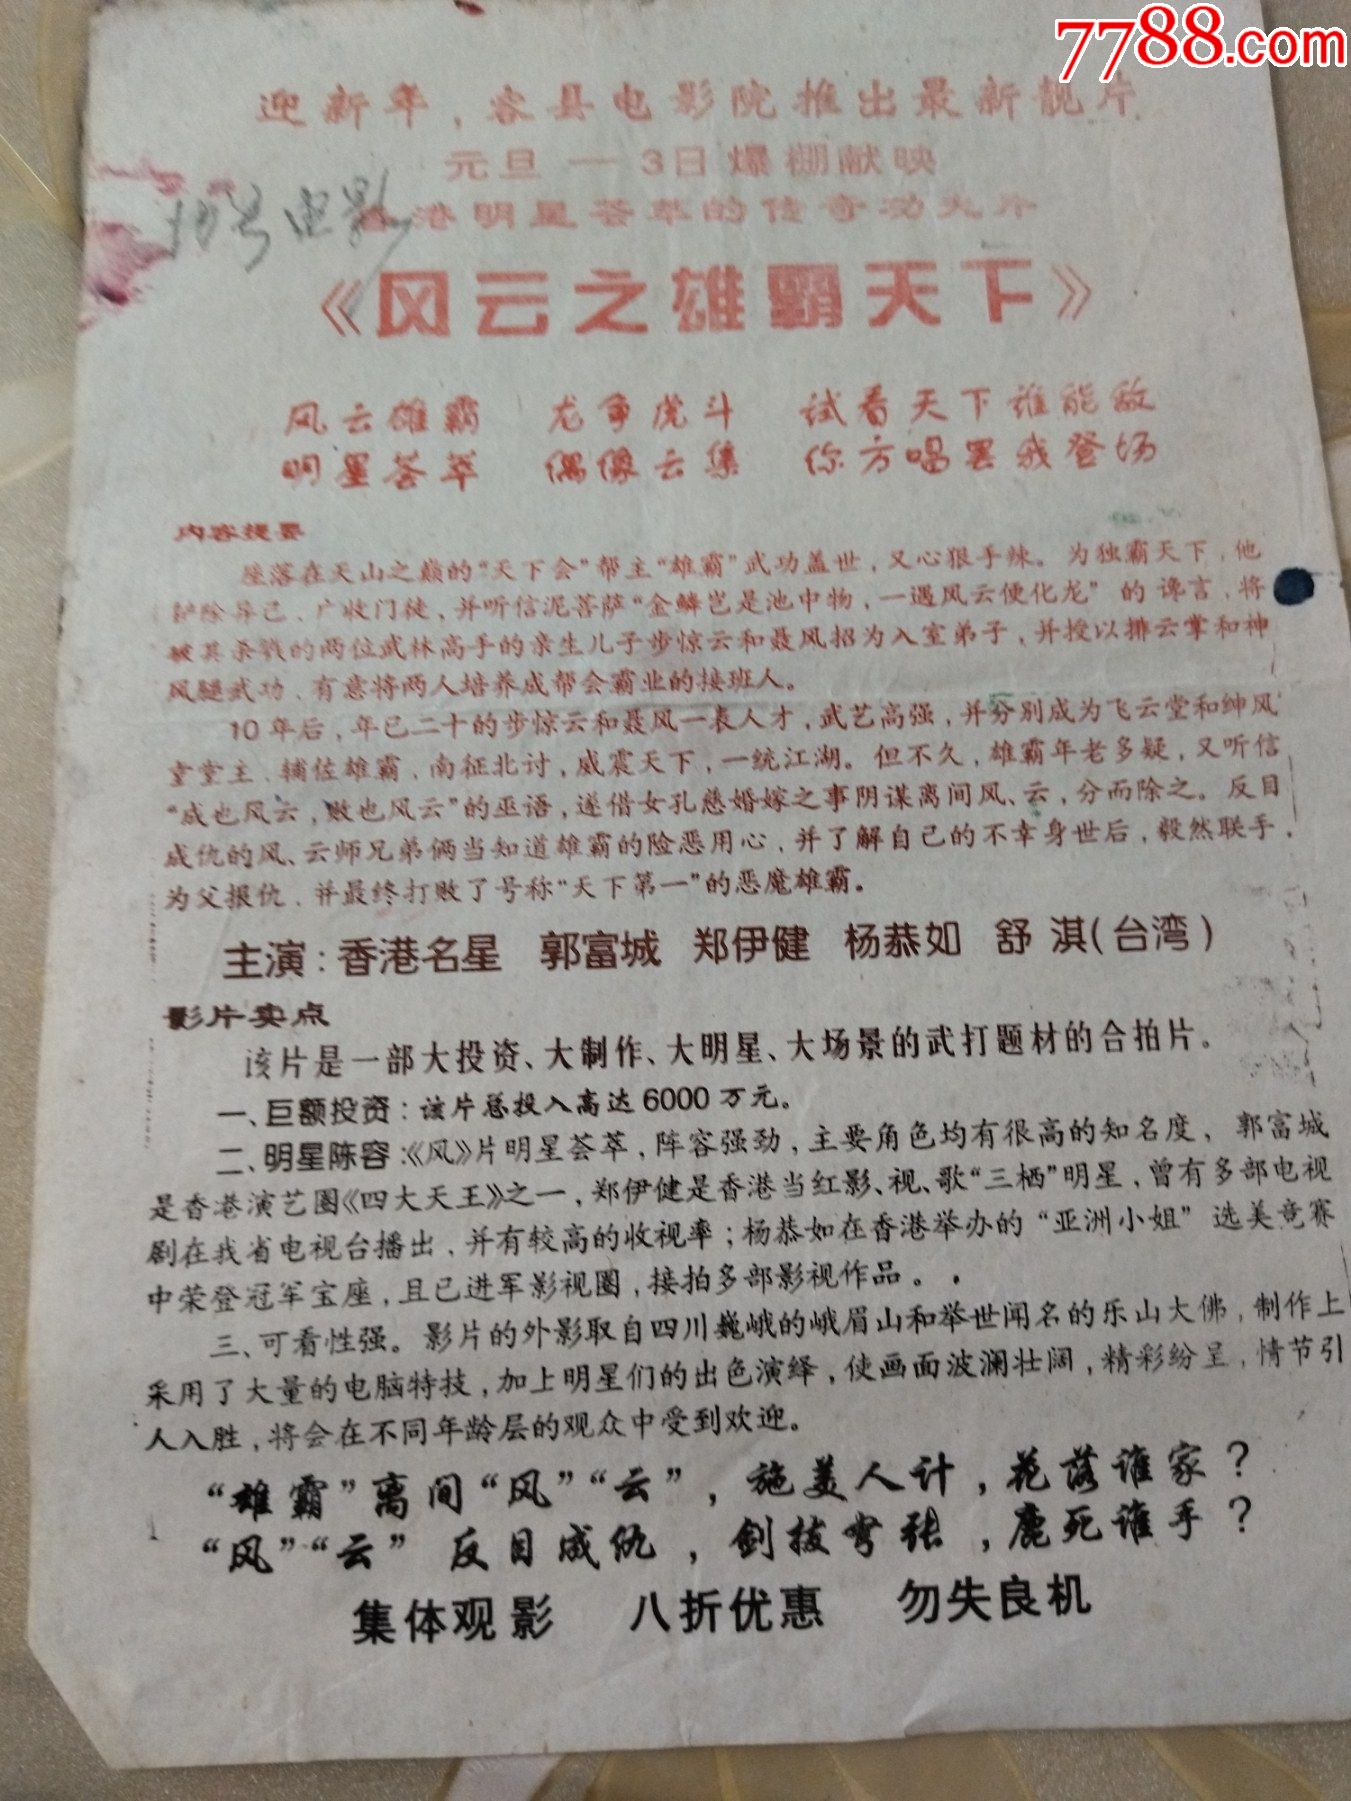 7788.com
中国收藏热线
迎新年，容县电影院推出最新靓片
元旦一3日爆棚献映
香港明星荟萃的传奇功夫片
电影
《风云之雄霸天下》
风云雄霸 龙争虎斗 试看天下谁能敌
明星荟萃 偶像云集 你方唱罢我登场
内容提要
座落在天山之巅的“天下会”帮主“雄霸”武功盖世，又心狠手辣。为独霸天下，他
铲除异己、广收门徒，并听信泥菩萨“金鳞岂是池中物，一遇风云便化龙”的谗言，将
被其杀戮的两位武林高手的亲生儿子步惊云和聂风招为入室弟子，并授以排云掌和神
风腿武功、有意将两人培养成帮会霸业的接班人。
10年后，年已二十的步惊云和聂风一表人才，武艺高强，并分别成为飞云堂和绅风
堂堂主、辅佐雄霸，南征北讨，威震天下，一统江湖。但不久，雄霸年老多疑，又听信
“成也风云，败也风云”的巫语，遂借女孔慈婚嫁之事阴谋离间风、云，分而除之。反目
成仇的风、云师兄弟俩当知道雄霸的险恶用心，并了解自己的不幸身世后，毅然联手，
为父报仇、并最终打败了号称“天下第一”的恶魔雄霸。
主演：香港名星 郭富城 郑伊健 杨恭如 舒 淇（台湾）
影片卖点
该片是一部大投资、大制作、大明星、大场景的武打题材的合拍片。
一、巨额投资：该片总投入高达6000万元。
二、明星陈容：《风》片明星荟萃，阵容强劲，主要角色均有很高的知名度，郭富城
是香港演艺圈《四大天王》之一，郑伊健是香港当红影、视、歌“三栖”明星，曾有多部电视
剧在我省电视台播出，并有较高的收视率；杨恭如在香港举办的“亚洲小姐”选美竞赛
中荣登冠军宝座，且已进军影视圈，接拍多部影视作品。
三、可看性强。影片的外影取自四川巍峨的峨眉山和举世闻名的乐山大佛，制作上
采用了大量的电脑特技，加上明星们的出色演绎，使画面波澜壮阔，精彩纷呈，情节引
人入胜，将会在不同年龄层的观众中受到欢迎。
“雄霸”离间“风”“云”，施美人计，花落谁家？
“风”“云”反目成仇，剑拔弯张，鹿死谁手？
集体观影 八折优惠 勿失良机